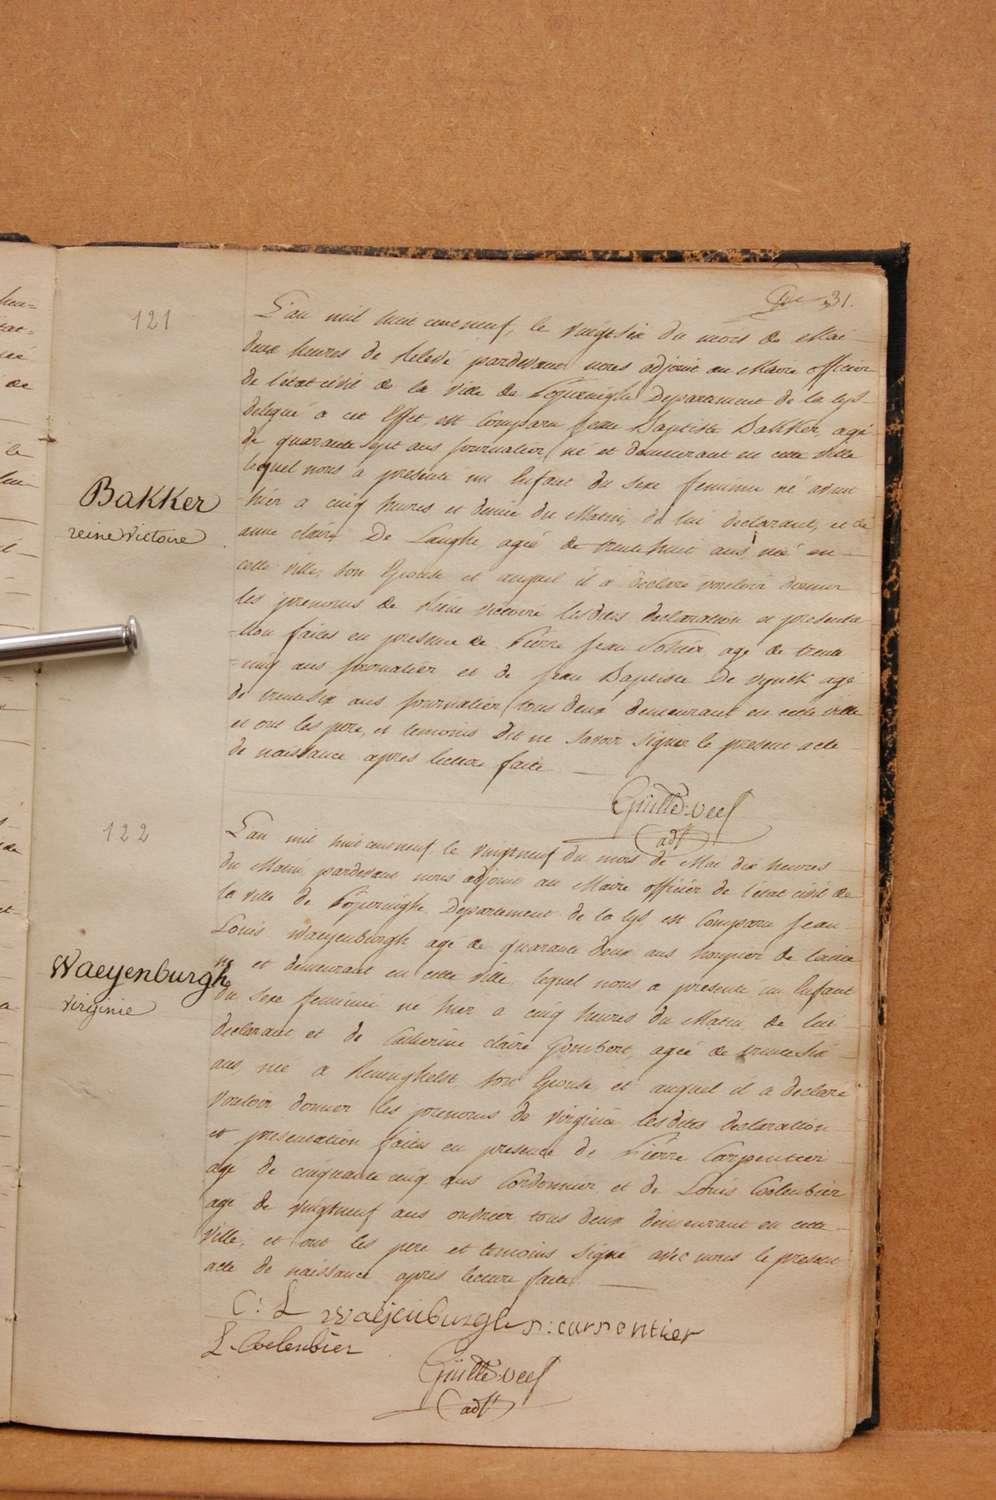 31.
121
L'an mil huit cent neuf, le vingt six du mois de Mai
deux heures de relevé pardevant nous adjoint au Maire officier
de l'état civil de la ville de Departement de la Lys
delegué a cet effet, est Comparu Jean Baptiste Bakker, agé
de quarante sept ans journalier, né et demeurant en cette ville
lequel nous a presenté un Enfant du sexe feminin né avant
Bakker
reine victoire
-hier a cinq heures et demie du Matin, de lui declarant, et de
anne claire De Langhe, agée de trente huit ans née en
cette ville, son Epouse et auquel il a declaré vouloir donner
les prenoms de Reine victoire lesdites declaration et presenta-
-tion faites en presence de Pierre Jean agé de trente
-cinq ans journalier et de Jean Baptiste De agé
de trente six ans journalier, tous deux demeurant en cette ville
et ont les pere, et temoins dit ne savoir signer le present acte
de naissance apres lecture faite
adjt
122
L'an mil huit cent neuf le vingt neuf du mois de Mai dix heures
du Matin pardevant nous adjoint au Maire officier de l'état civil de
la ville de Departement de la Lys est Comparu Jean
Louis Waeyenburgh agé de quarante deux ans
Waeyenburgh
virginie
né et demeurant en cette ville lequel nous a presenté un Enfant
du sexe feminin né hier a cinq heures du Matin, de lui
declarant et de Catherine claire Gombert, agée de trente six
ans née a son Epouse et auquel il a declaré
vouloir donner les prenoms de virginie lesdites declaration
et presentation faites en presence de Pierre Carpentier
agé de cinquante cinq ans Cordonnier et de Louis Coelenbier
agé de vingt neuf ans ouvrier tous deux demeurant en cette
ville, et ont les pere et temoins signé avec nous le present
acte de naissance apres lecture faite
C: L Waeijenburgh p: carpentier
L. Coelenbier
adjt